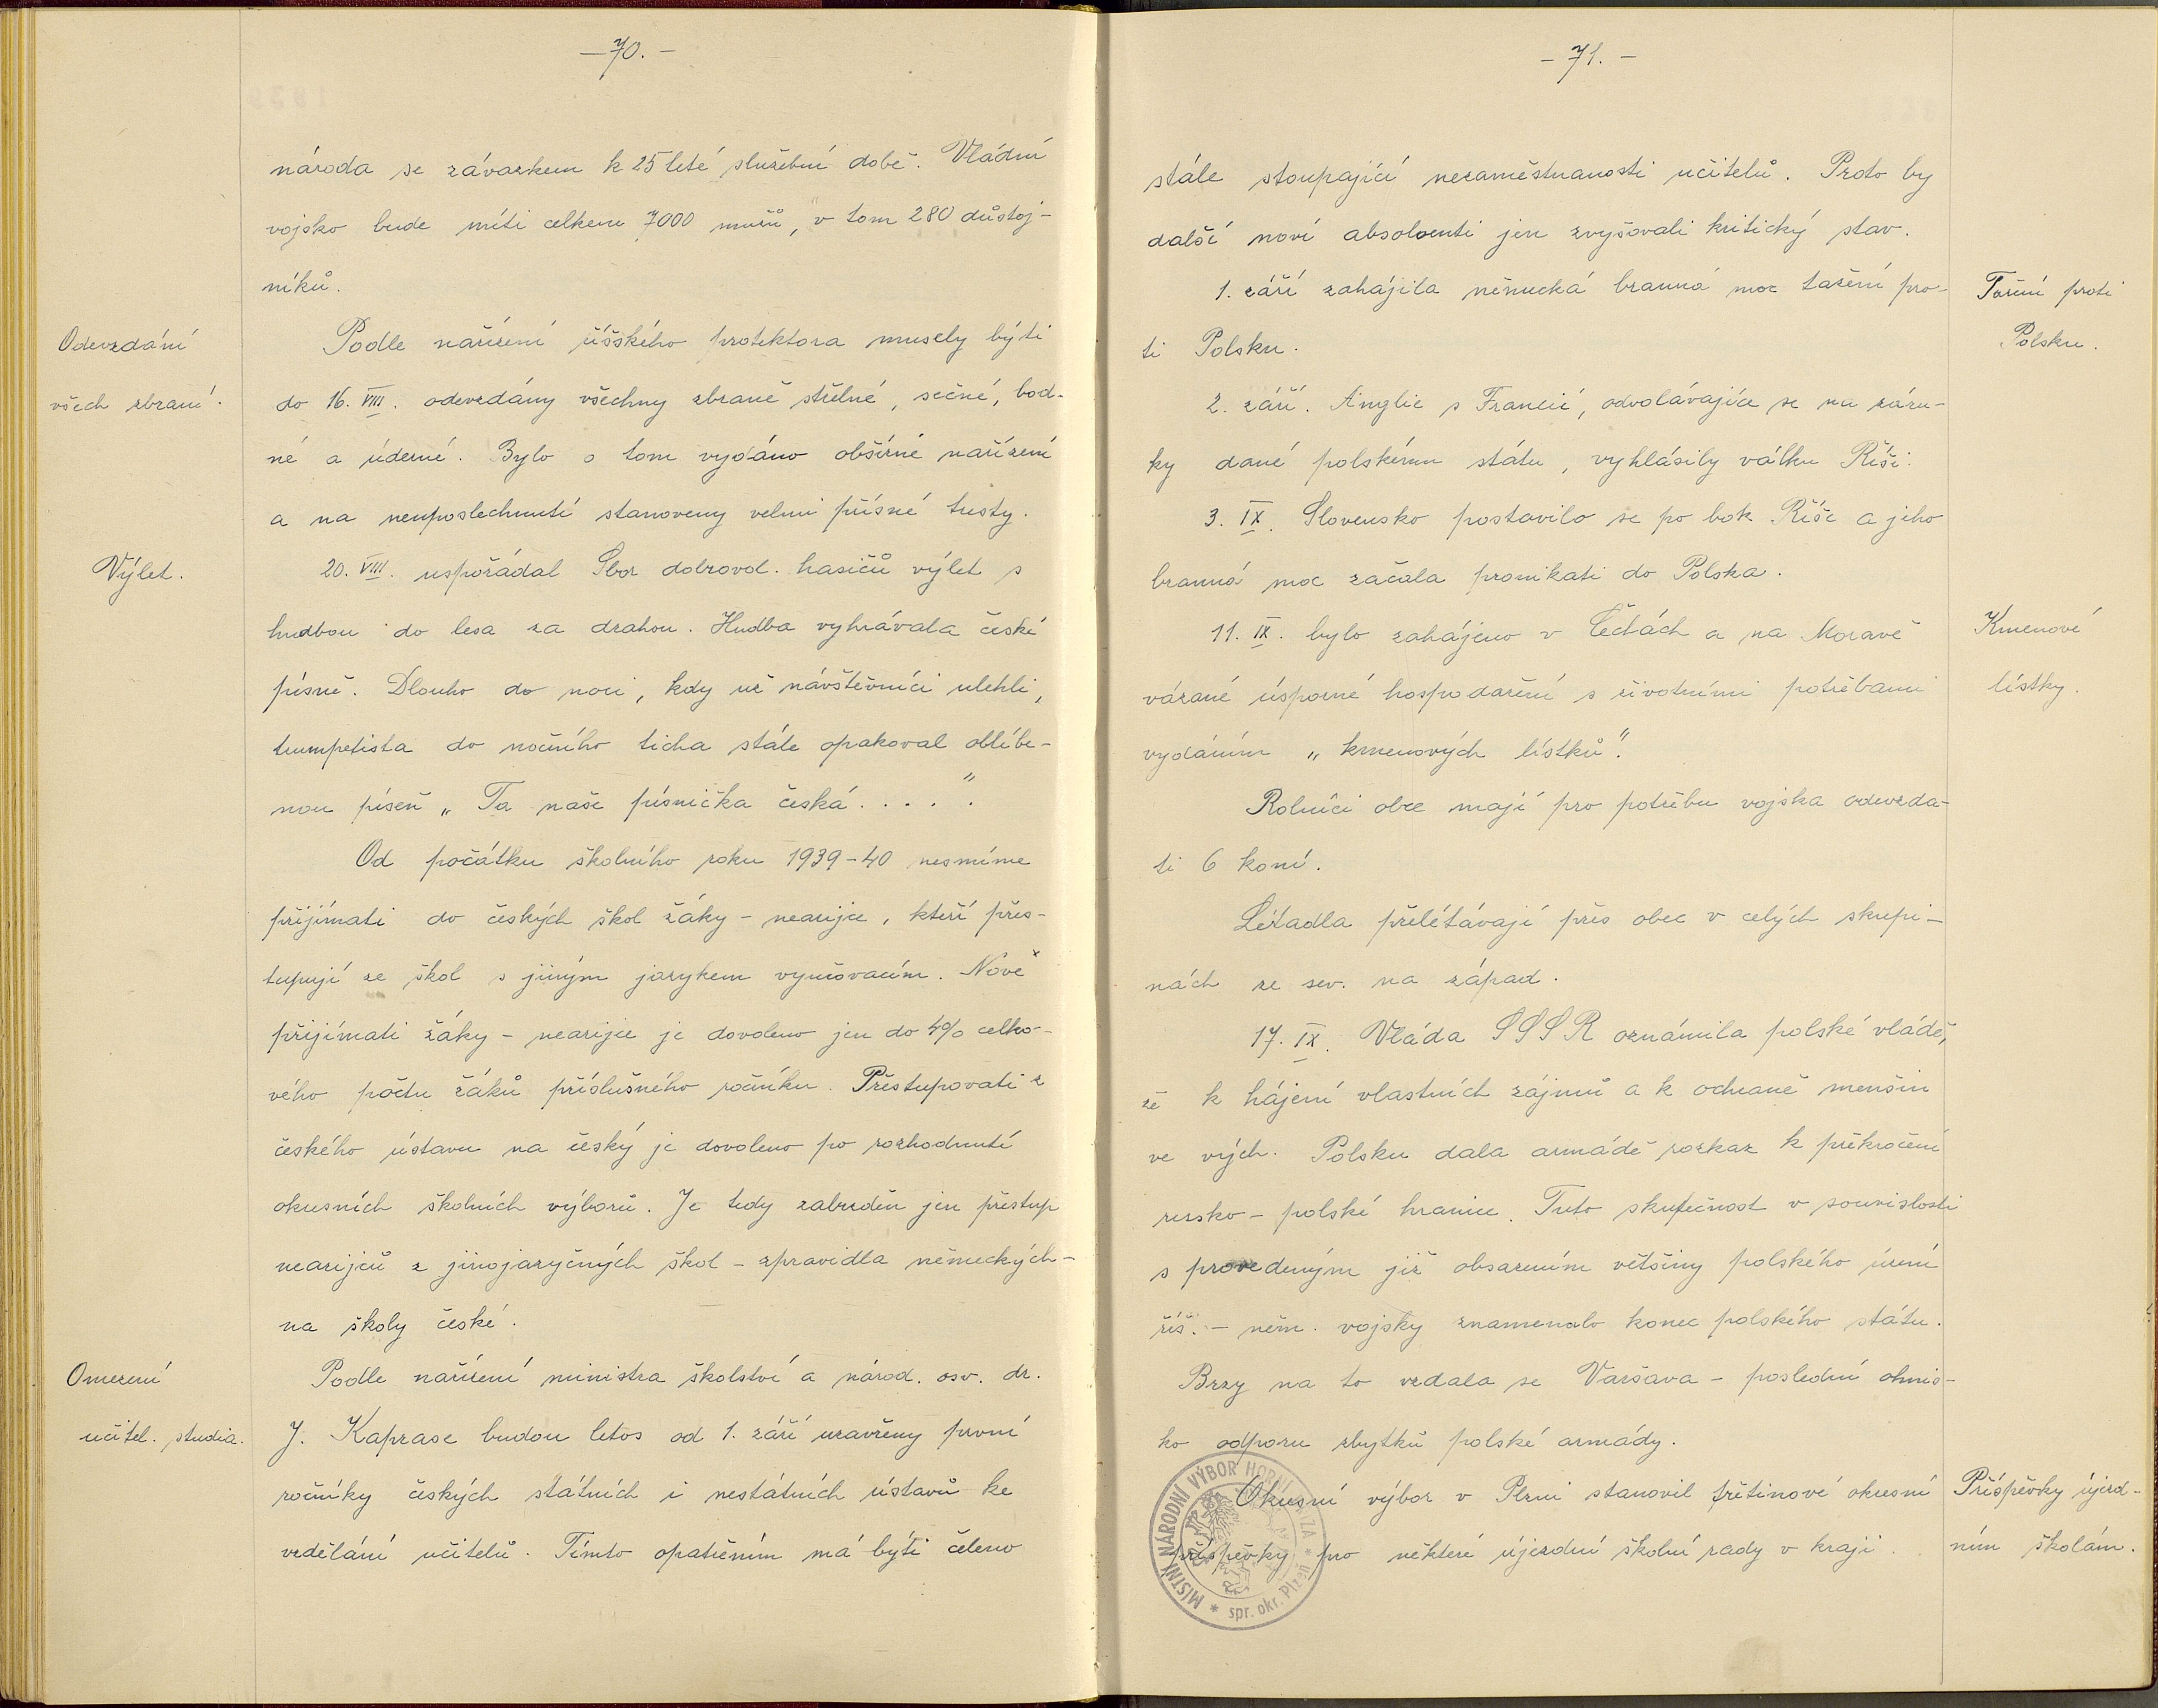 - 70. -
národa se závazkem k 25 leté služební době. Vládní
vojsko bude míti celkem 7000 mužů, v tom 280 důstoj-
níků.
Odevzdání
všech zbraní.
Podle nařízení říšského protektora musely býti
do 16. VIII. odevzdány všechny zbraně střelné, sečné, bod-
né a úderné. Bylo o tom vydáno obšírné nařízení
a na neuposlechnutí stanoveny velmi přísné tresty.
Výlet.
20. VIII. uspořádal Sbor dobrovol. hasičů výlet s
hudbou do lesa za drahou. Hudba vyhrávala české
písně. Dlouho do noci, kdy už návštěvníci ulehli,
trumpetista do nočního ticha stále opakoval oblíbe-
nou píseň „Ta naše písnička česká . . . . ".
Od počátku školního roku 1939-40 nesmíme
přijímati do českých škol žáky - nearijce, kteří přes-
tupují ze škol s jiným jazykem vyučovacím. Nově
přijímati žáky - nearijce je dovoleno jen do 4% celko-
vého počtu žáků příslušného ročníku. Přestupovati z
českého ústavu na český je dovoleno po rozhodnutí
okresních školních výborů. Je tedy zabráněn jen přestup
nearijců z jinojazyčných škol - zpravidla německých -
na školy české.
Omezení
učitel. studia.
Podle nařízení ministra školství a národ. osv. dr.
J. Kaprase budou letos od 1. září uzavřeny první
ročníky českých státních i nestátních ústavů ke
vzdělání učitelů. Tímto opatřením má býti čeleno
- 71. -
stále stoupající nezaměstnanosti učitelů. Proto by
další noví absolventi jen zvyšovali kritický stav.
1. září zahájila německá branná moc tažení pro-
ti Polsku.
Tažení proti
Polsku.
2. září. Anglie s Francií, odvolávajíce se na záru-
ky dané polskému státu, vyhlásily válku Říši.
3. IX. Slovensko postavilo se po bok Říše a jeho
branná moc začala pronikati do Polska.
11. IX. bylo zahájeno v Čechách a na Moravě
vázané úsporné hospodaření s životními potřebami
vydáním „kmenových lístků".
Kmenové
lístky.
Rolníci obce mají pro potřebu vojska odevzda-
ti 6 koní.
Letadla přelétávají přes obec v celých skupi-
nách ze sev. na západ.
17. IX. Vláda SSSR oznámila polské vládě,
že k hájení vlastních zájmů a k ochraně menšin
ve vých. Polsku dala armádě rozkaz k překročení
rusko - polské hranice. Tuto skutečnost v souvislosti
s provedeným již obsazením většiny polského území
říš. - něm. vojsky znamenalo konec polského státu.
Brzy na to vzdala se Varšava - poslední ohnis-
ko odporu zbytků polské armády.
Okresní výbor v Plzni stanovil třetinové okresní
příspěvky pro některé újezdní školní rady v kraji.
Příspěvky újezd-
ním školám.
MÍSTNÍ NÁRODNÍ VÝBOR HORNÍ
* spr. okr. Plzeň *